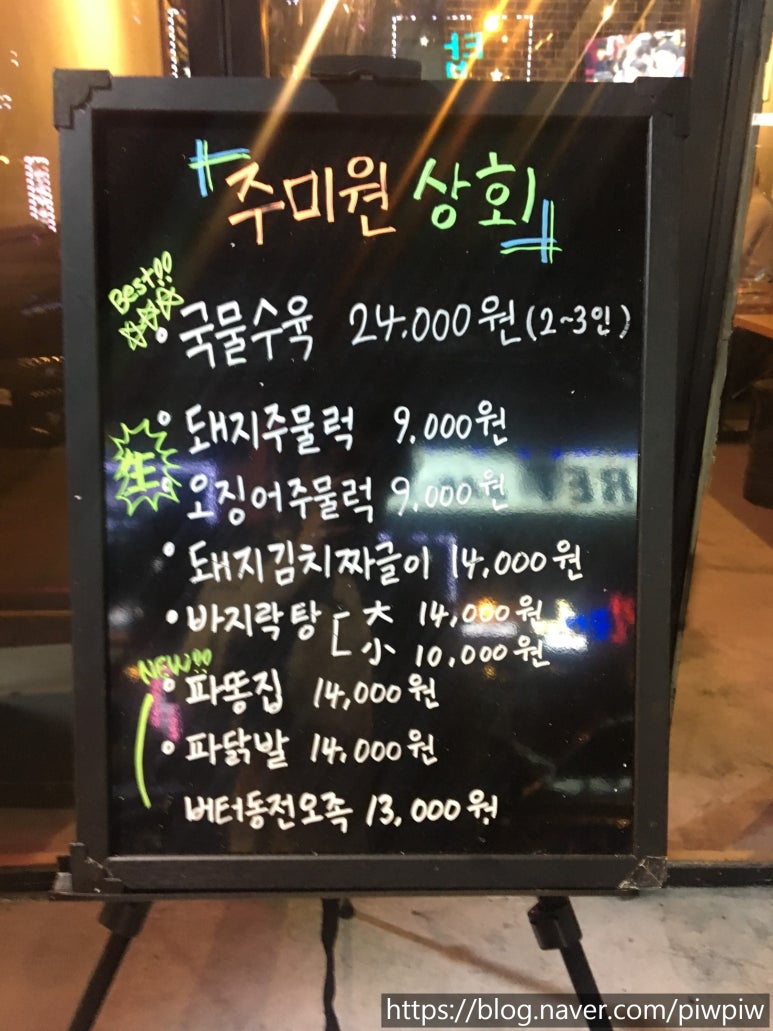 주미원 상회
Best!!
국물수육 24,000원 (2~3인)
生
돼지주물럭 9,000원
오징어주물럭 9,000원
돼지김치짜글이 14,000원
바지락탕 [ 大 14,000원
小 10,000원
NEW!!
파똥집 14,000원
파닭발 14,000원
버터동전오족 13,000원
https://blog.naver.com/piwpiw